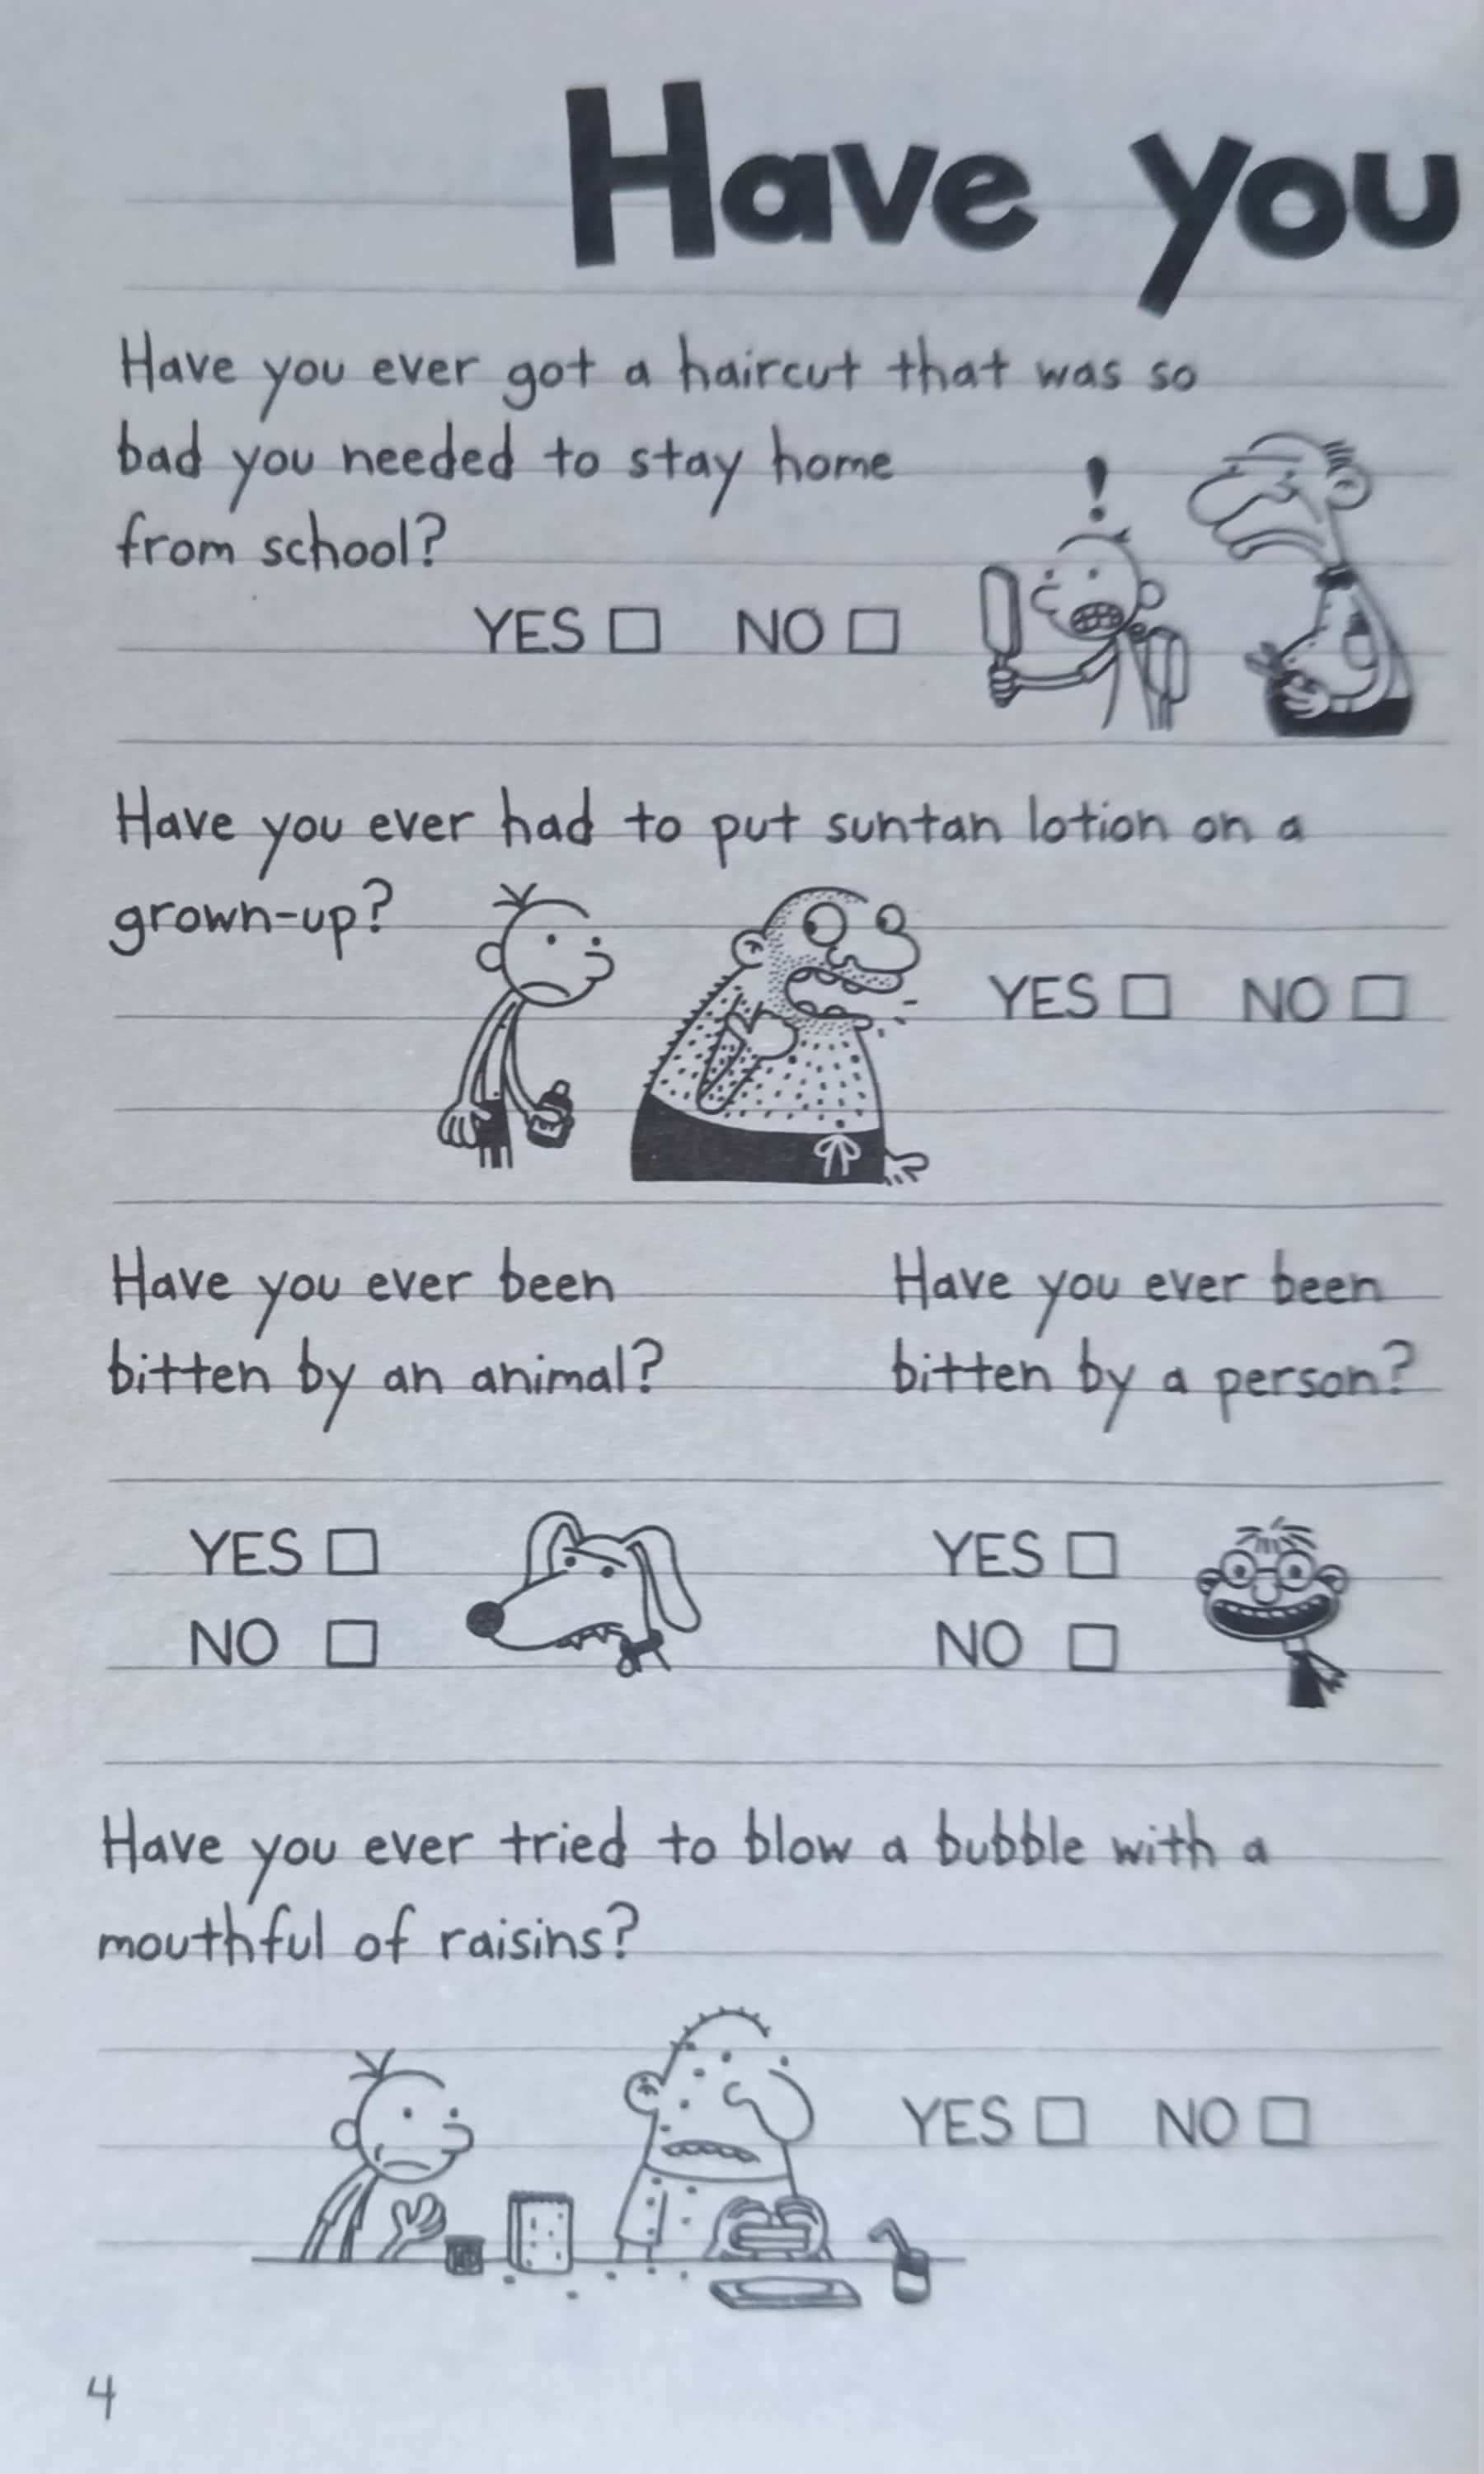 Have you
Have you ever got a haircut that was so
bad you needed to stay home
from school?
YES NO
!
Have you ever had to put suntan lotion on a
grown-up?
YES NO
Have you ever been
bitten by an animal?
YES
NO
Have you ever been
bitten by a person?
YES
NO
Have you ever tried to blow a bubble with a
mouthful of raisins?
YES NO
4